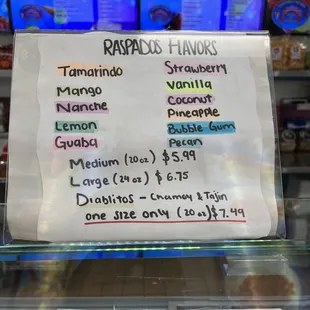 RASPADOS FLAVORS
Tamarindo
Mango
Nanche
Lemon
Guaba
Strawberry
Vanilla
Coconut
Pineapple
Bubble Gum
Pecan
Medium (20oz) $5.99
Large (24oz) $6.75
Diablitos - Chamoy & Tajin
one size only (20oz) $7.49